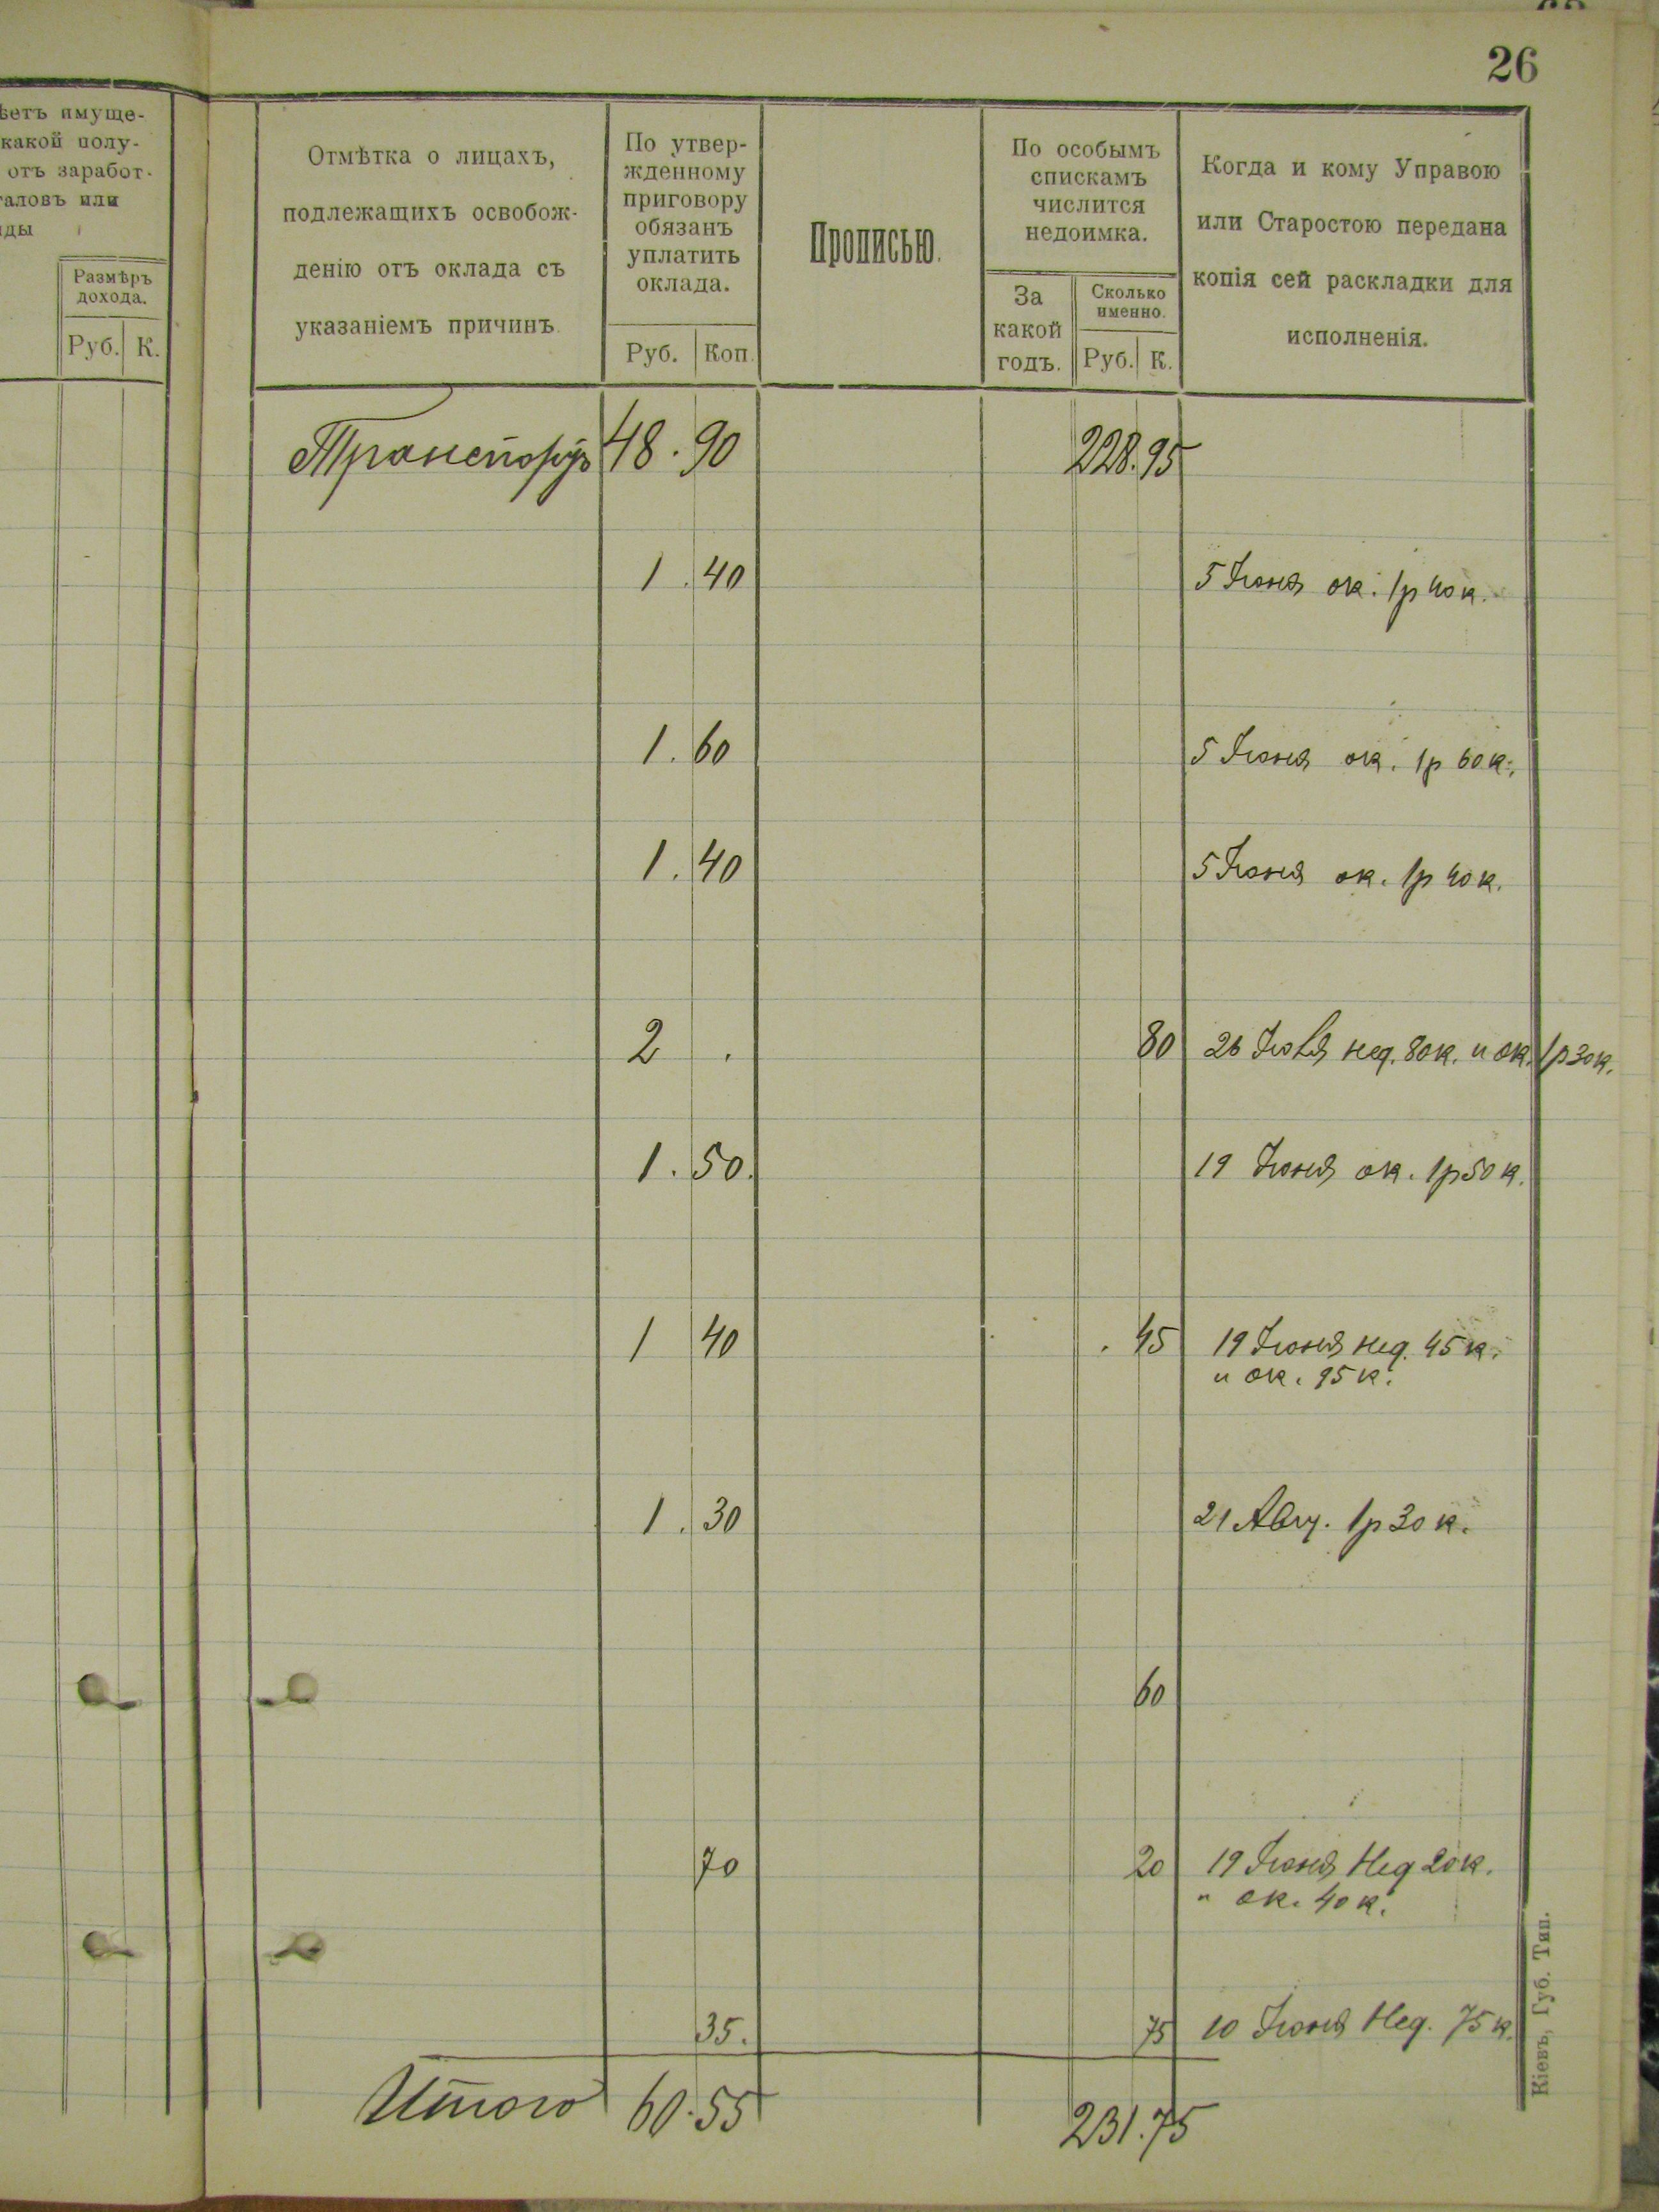 26
ѣетъ имуще-
какой полу-
отъ заработ-
таловъ или
ды
Размѣръ
дохода.
Руб. К.
Отмѣтка о лицахъ,
подлежащихъ освобож-
денію отъ оклада съ
указаніемъ причинъ.
По утвер-
жденному
приговору
обязанъ
уплатить
оклада.
Руб. Коп.
Прописью.
По особымъ
спискамъ
числится
недоимка.
За
какой
годъ.
Сколько
именно.
Руб. К.
Когда и кому Управою
или Старостою передана
копія сей раскладки для
исполненія.
Транспортъ 48.90 228.95
1.40 5 Іюня ок. 1р 40к.
1.60 5 Іюня ок. 1р 60к.
1.40 5 Іюня ок. 1р 40к.
2 . 80 26 Іюля нед. 80к. и ок. 1р30к.
1.50. 19 Іюня ок. 1р50к.
1 40 . 45 19 Іюня нед. 45к.
и ок. 95к.
1.30 21 Авг. 1р30к.
60
70 20 19 Іюня Нед 20к.
и ок. 40к.
35. 75 10 Іюня Нед. 75к.
Итого 60.55 231.75
Кіевъ, Губ. Тип.